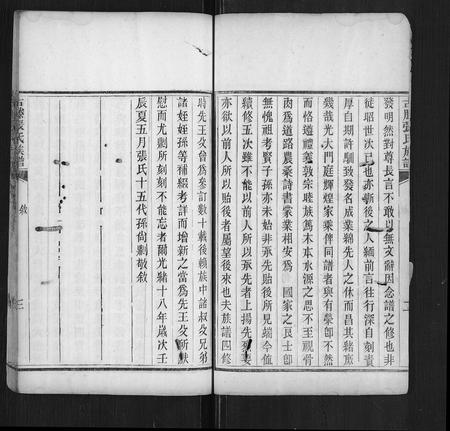 發明然對尊長言不敢以無文辭因念譜之修也非
徒昭世次已也亦新後之人緬前言往行深自刻責
厚自期許馴致發名成業綿先人之休而昌其緒庶
幾哉光大門庭輝煌家乘俾同譜者與有榮卽不然
而恪遵禮義敦宗睦族篤木本水源之思不至視骨
肉為道路農桑詩書常業相安為 國家之良士卽
無愧祖考賢子孫亦未始非承先貽後所見端今值
續修五次雖不能以前人所以承先者上揚先烈
亦欲以前人所以貽後者屬望後來也夫族譜四修
時先王父曾為參訂數十載後賴族中諸叔父兄弟
諸姪姪孫等補綴考詳而增新之當為先王父所默
慰而尤剿所刻刻不能忘者爾光緒十八年歲次壬
辰夏五月張氏十五代孫尙剿敬敘
張氏族譜
敘
三
張氏族譜